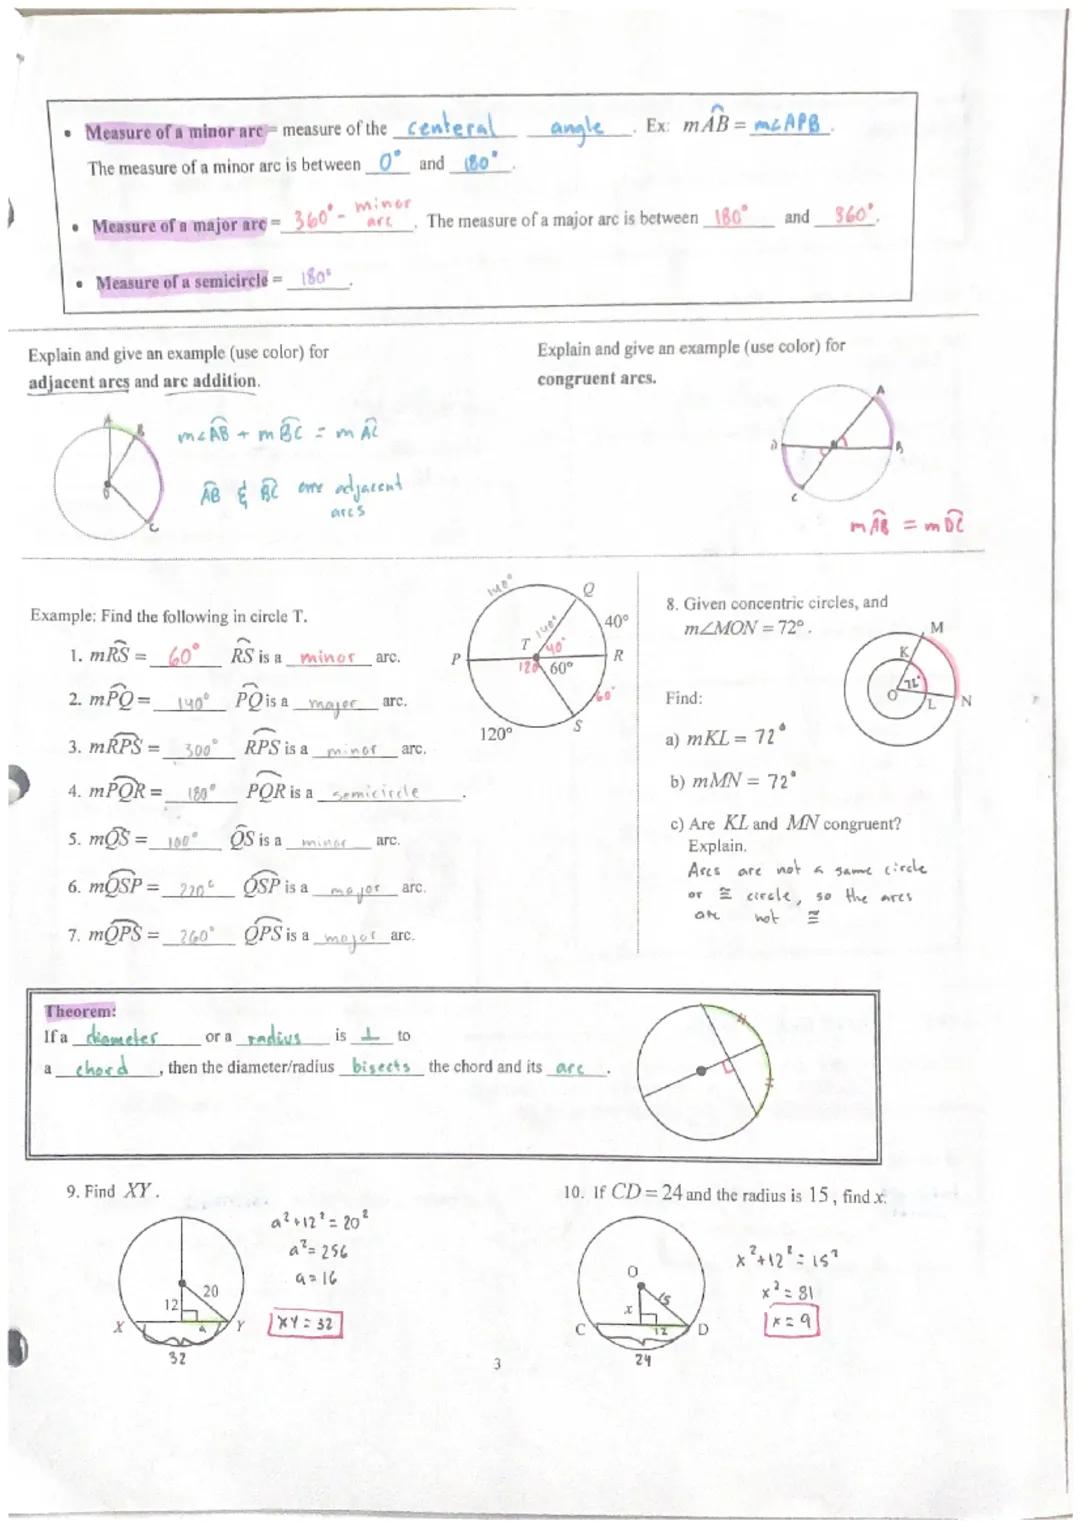 • Measure of a minor arc = measure of the centeral angle. Ex: mAB = m∠APB.
The measure of a minor arc is between 0° and 180°.
• Measure of a major arc = 360° - minor arc. The measure of a major arc is between 180° and 360°.
• Measure of a semicircle = 180°.
Explain and give an example (use color) for
adjacent arcs and arc addition.
Explain and give an example (use color) for
congruent arcs.
A
B
C
m∠AB + mBC = mAC
AB & BC are adjacent
arcs
A
D
B
C
mAB = mDC
Example: Find the following in circle T.
1. mRS = 60° RS is a minor arc.
2. mPQ = 140° PQ is a major arc.
3. mRPS = 300° RPS is a minor arc.
4. mPQR = 180° PQR is a semicircle.
5. mQS = 100° QS is a minor arc.
6. mQSP = 220° QSP is a major arc.
7. mQPS = 260° QPS is a major arc.
140°
Q
40°
140°
T
40°
P
R
120
60°
60°
120°
S
8. Given concentric circles, and
m∠MON = 72°.
M
K
72°
O
L
N
Find:
a) mKL = 72°
b) mMN = 72°
c) Are KL and MN congruent?
Explain.
Arcs are not a same circle
or ≅ circle, so the arcs
are not ≅
Theorem:
If a diameter or a radius is ⊥ to
a chord, then the diameter/radius bisects the chord and its arc.
9. Find XY.
20
12
X
a
Y
32
a² + 12² = 20²
a² = 256
a = 16
XY = 32
10. If CD = 24 and the radius is 15, find x.
O
15
x
C
12
D
24
x² + 12² = 15²
x² = 81
x = 9
3